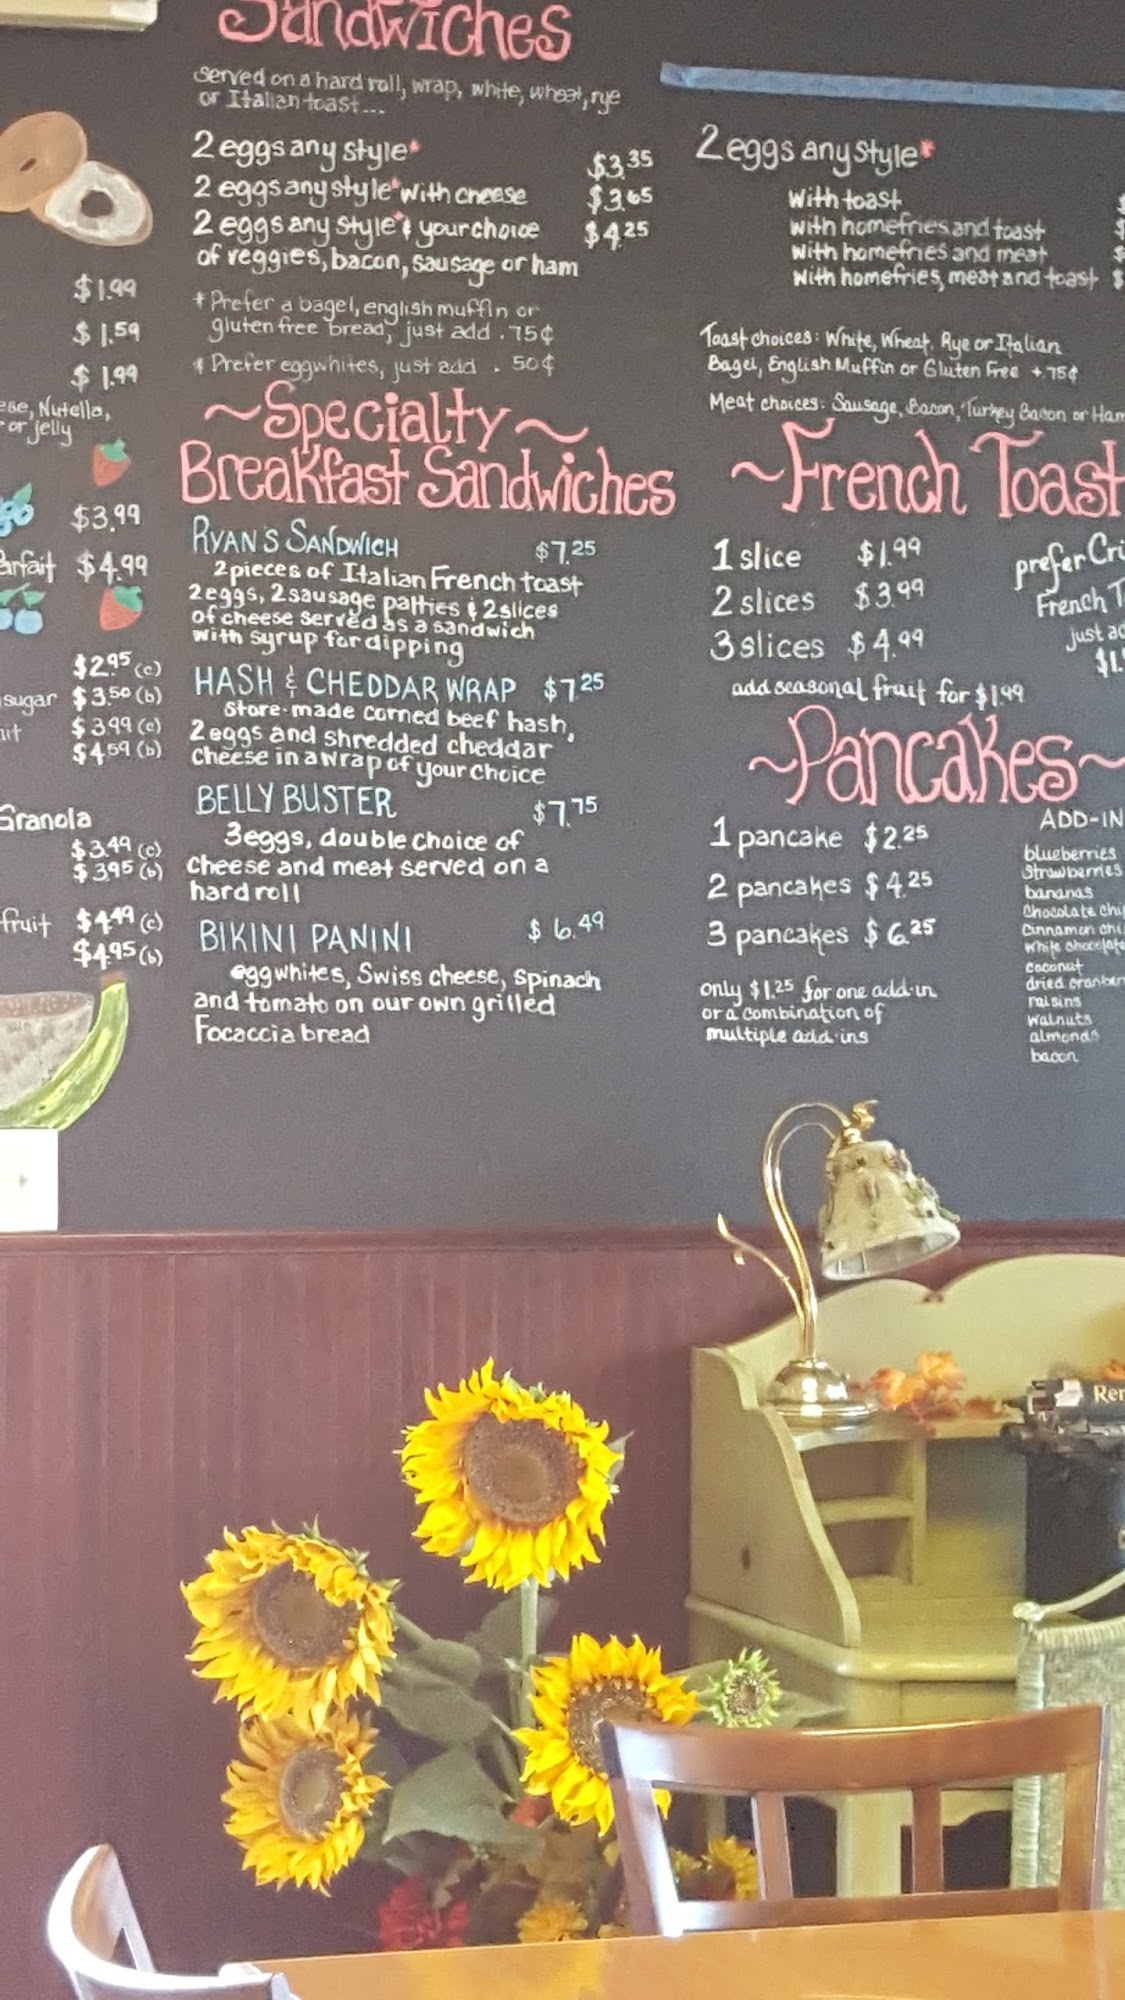 Sandwiches
served on a hard roll, wrap, white, wheat, rye
or Italian toast...
2 eggs any style*
$3.35
2 eggs any style* with cheese
$3.65
2 eggs any style* & your choice
$4.25
of veggies, bacon, sausage or ham
* Prefer a bagel, english muffin or
gluten free bread, just add .75¢
* Prefer eggwhites, just add . 50¢
~Specialty~
Breakfast Sandwiches
RYAN'S SANDWICH $7.25
2 pieces of Italian French toast
2 eggs, 2 sausage patties & 2 slices
of cheese served as a sandwich
with syrup for dipping
HASH & CHEDDAR WRAP $7.25
store-made corned beef hash,
2 eggs and shredded cheddar
cheese in a wrap of your choice
BELLY BUSTER $7.75
3 eggs, double choice of
cheese and meat served on a
hard roll
BIKINI PANINI $6.49
eggwhites, Swiss cheese, spinach
and tomato on our own grilled
Focaccia bread
2 eggs any style*
with toast
with homefries and toast
with homefries and meat
with homefries, meat and toast $
Toast choices: White, Wheat, Rye or Italian
Bagel, English Muffin or Gluten Free +.75¢
Meat choices: Sausage, Bacon, Turkey Bacon or Ham
~French Toast
1 slice $1.99
2 slices $3.99
3 slices $4.99
add seasonal fruit for $1.99
prefer
French
just
~Pancakes~
1 pancake $2.25
2 pancakes $4.25
3 pancakes $6.25
only $1.25 for one add-in
or a combination of
multiple add-ins
ADD-IN
blueberries
strawberries
bananas
Chocolate
Cinnamon
White
coconut
dried
raisins
walnuts
almonds
bacon
$1.99
$1.59
$1.99
Nutella,
or jelly
$3.99
$4.99
$2.95 (c)
sugar $3.50 (b)
$3.99 (c)
$4.59 (b)
Granola
$3.49 (c)
$3.95 (b)
fruit $4.49 (c)
$4.95 (b)